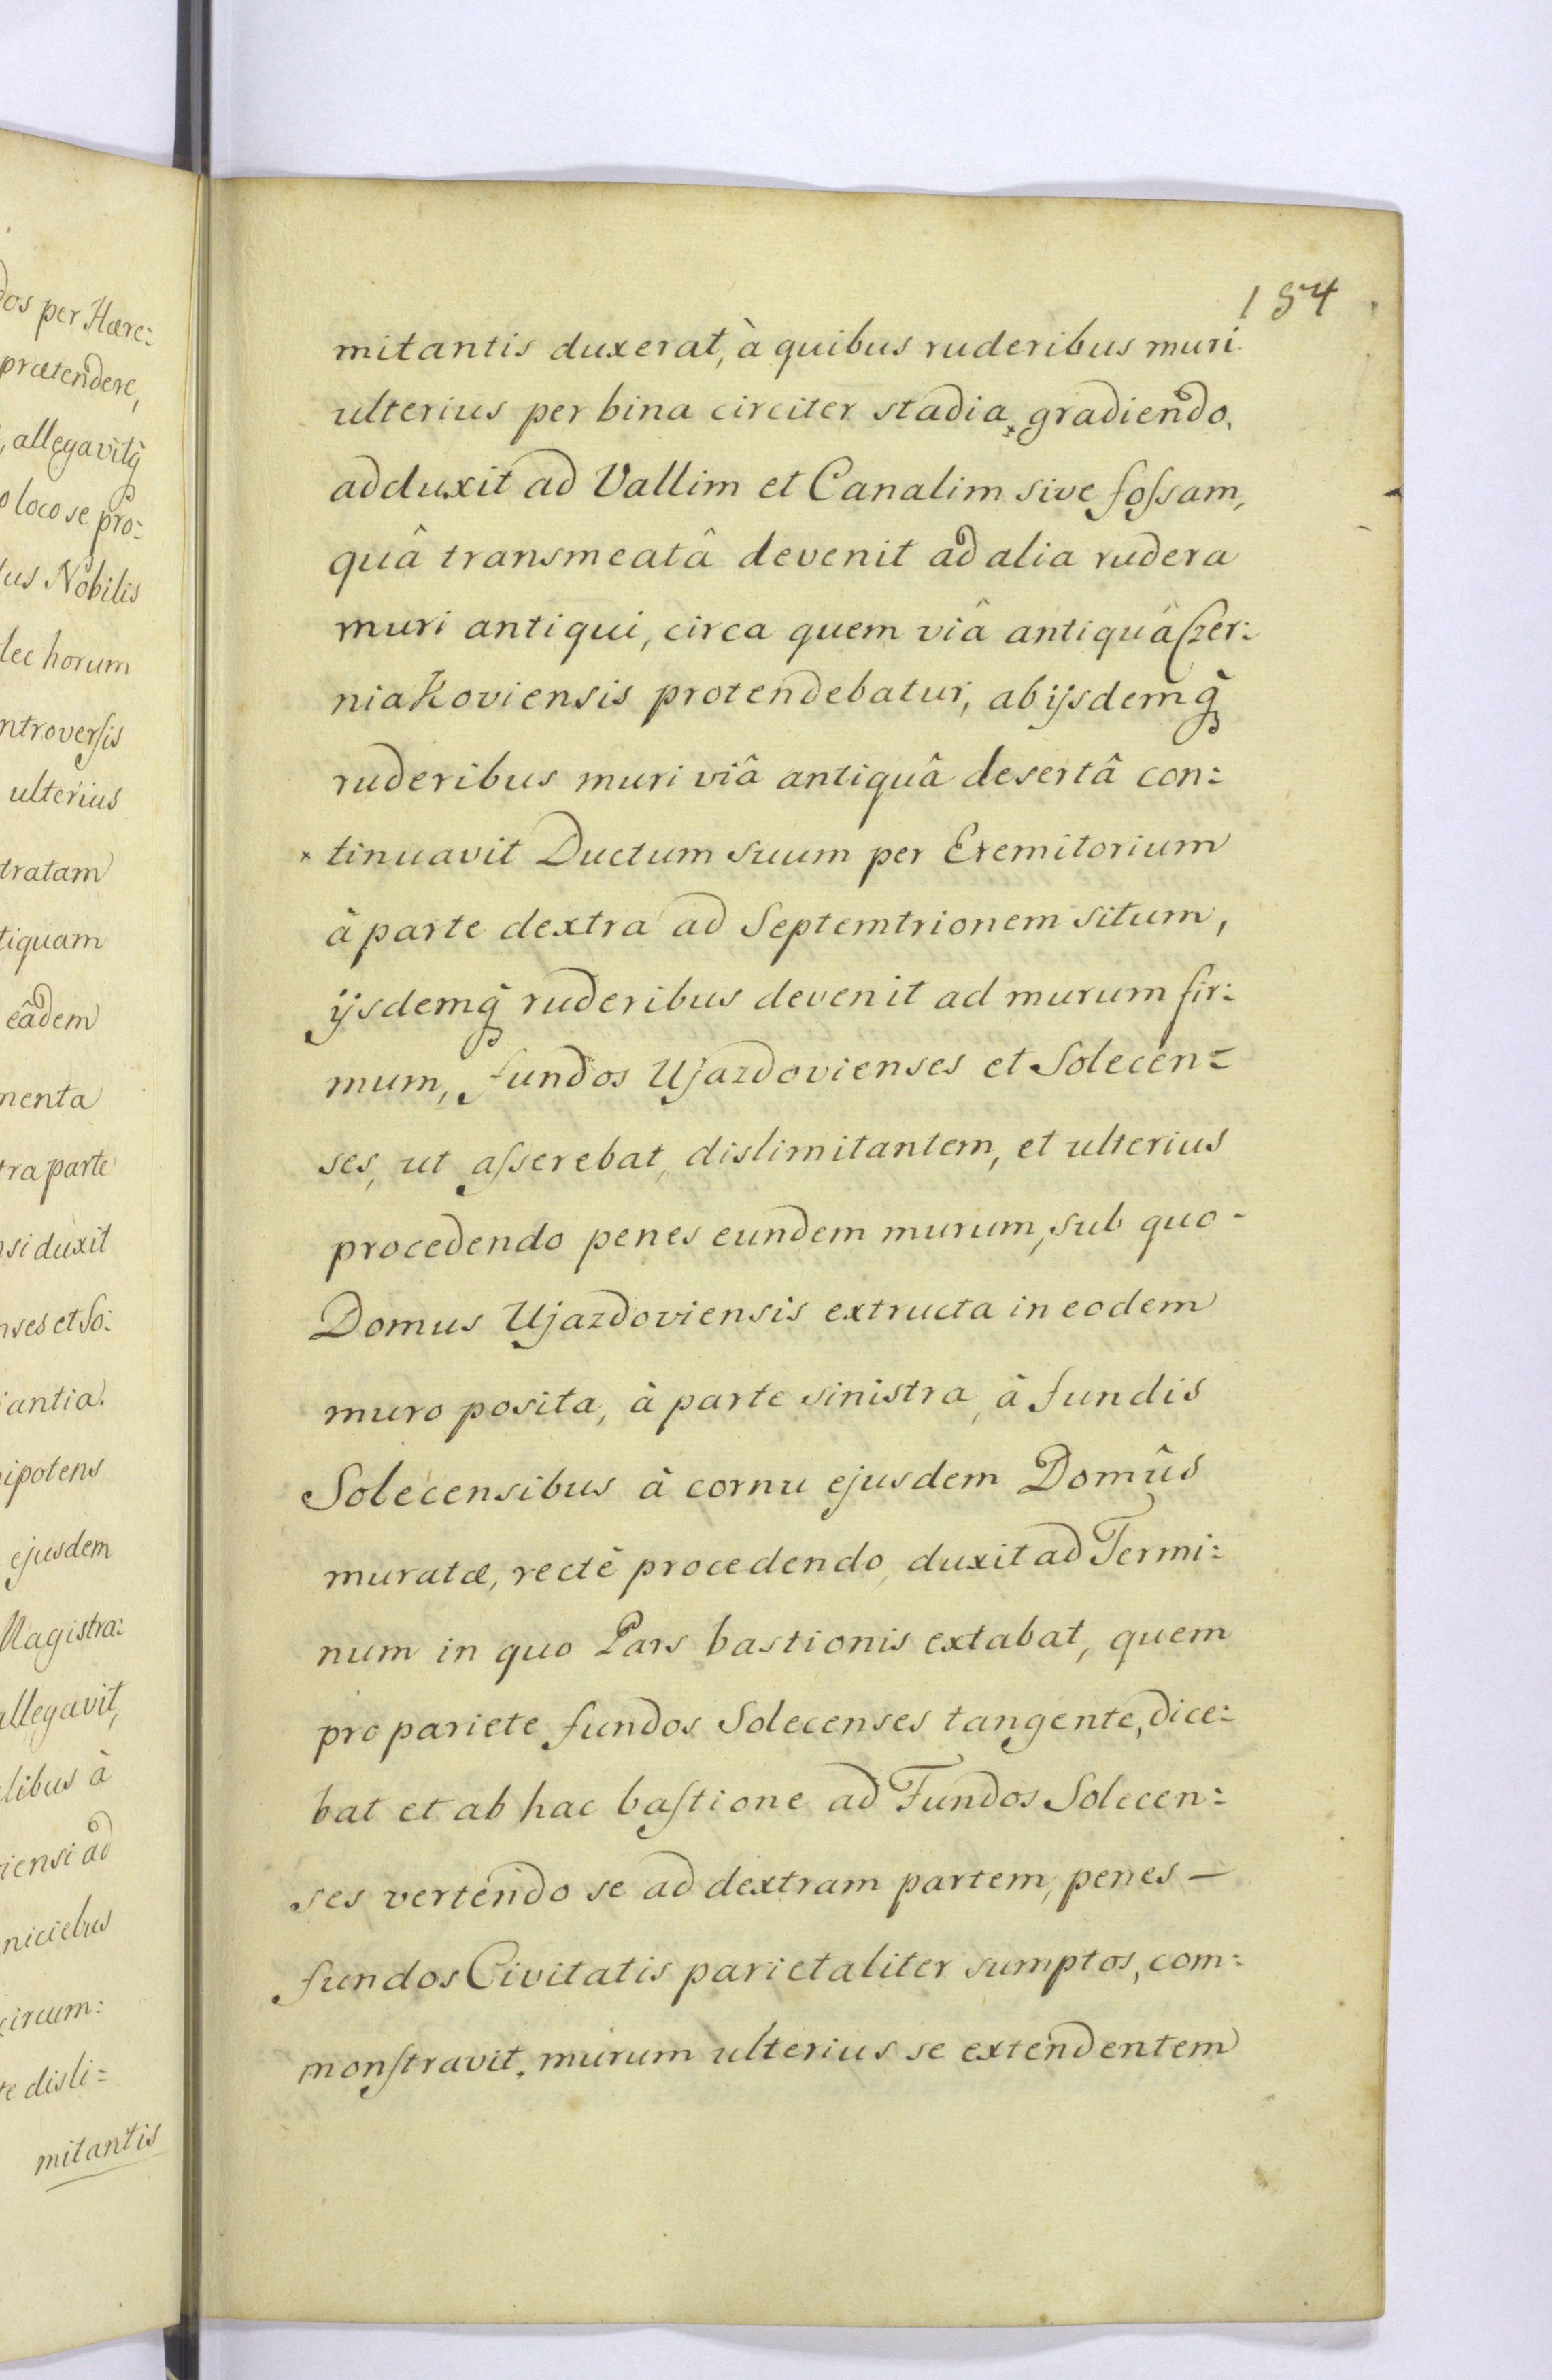 dos per Hære:
prætendere,
allegavitq̃
loco se pro:
tus Nobilis
lec horum
ntroversis
ulterius
tratam
tiquam
eâdem
menta
tra parte
si duxit
nses et So:
iantia.
ipotens
ejusdem
Magistra:
allegavit,
libus à
iensi ad
niciebus
circum:
te disli:
mitantis
184
mitantis duxerat, à quibus ruderibus muri
ulterius per bina circiter stadia, gradiendo,
adduxit ad Vallim et Canalim sive foſsam,
quâ transmeatâ devenit ad alia rudera
muri antiqui, circa quem viâ antiquâ Czer:
niakoviensis protendebatur, ab ijsdemq̃
ruderibus muri viâ antiquâ desertâ con:
× tinuavit Ductum suum per Eremitorium
à parte dextra ad Septemtrionem situm,
ijsdemq̃ ruderibus devenit ad murum fir:
mum, fundos Ujazdovienses et Solecen:
ses, ut aſserebat, dislimitantem, et ulterius
procedendo penes eundem murum, sub quo -
Domus Ujazdoviensis extructa in eodem
muro posita, à parte sinistra, à fundis
Solecensibus à cornu ejusdem Domûs
muratæ, rectè procedendo, duxit ad Termi:
num in quo Pars bastionis extabat, quem
pro pariete fundos Solecenses tangente, dice:
bat et ab hac baſtione ad Fundos Solecen:
ses vertendo se ad dextram partem, penes —
fundos Civitatis parietaliter sumptos, com:
monſtravit. murum ulterius se extendentem